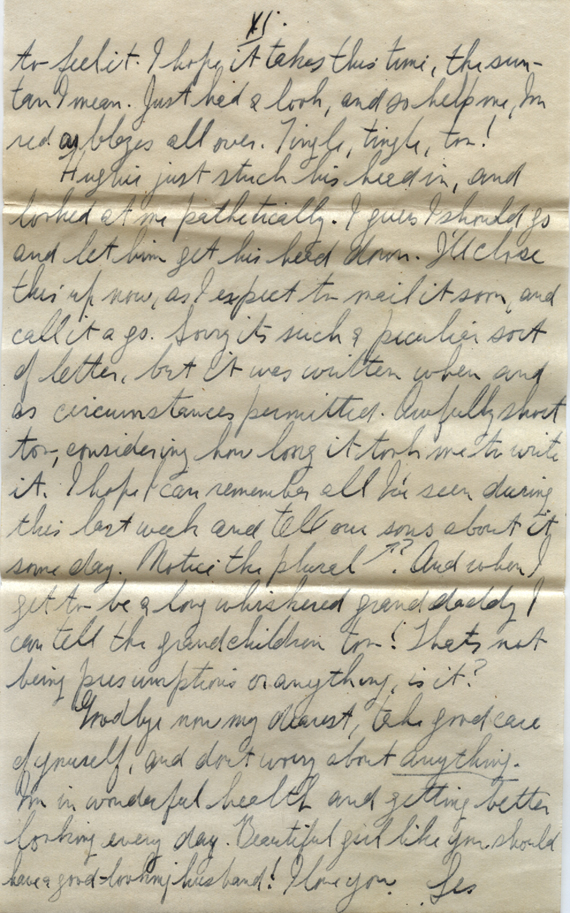 XI.
to feel it. I hope it takes this time, the sun-
tan I mean. Just had a look, and so help me, I'm
red as blazes all over. Tingle, tingle, too!
Hughie just stuck his head in, and
looked at me pathetically. I guess I should go
and let him get his head down. I'll close
this up now, as I expect to mail it soon, and
call it a go. Sorry its such a peculiar sort
of letter, but it was written when and
as circumstances permitted. Awfully short
too, considering how long it took me to write
it. I hope I can remember all I've seen during
this last week and tell our sons about it
some day. Notice the plural "s"? And when I
get to be a long whiskered grand daddy I
can tell the grandchildren too! Thats not
being presumptious or anything, is it?
Goodbye now my dearest, take good care
of yourself, and dont worry about anything.
I'm in wonderful health and getting better
looking every day. Beautiful girl like you should
have a good-looking husband! I love you. Les